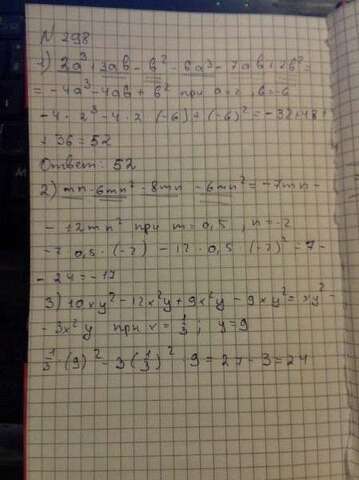 N 298
1) 2a³+3ab-b²-6a³-7ab+2b²=
=-4a³-4ab+b² при a=2, b=-6
-4·2³-4·2·(-6)+(-6)²=-32+48+
+36=52
Ответ: 52
2) mn-6mn²-8mn-6mn²=-7mn-
-12mn² при m=0,5, n=-2
-7·0,5·(-2)-12·0,5·(-2)²=7-
-24=-17
3) 10xy²-12x²y+9x²y-9xy²=xy²-
-3x²y при x=1/3; y=9
1/3·(9)²-3(1/3)²·9=27-3=24